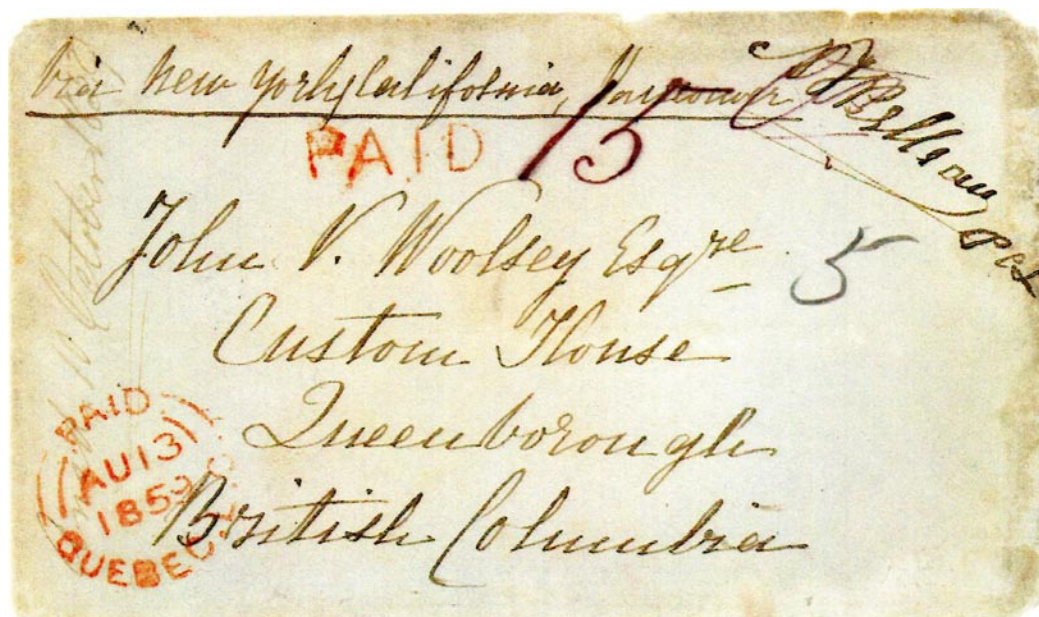 Via New York, California, Vancouver
PAID
15
John V. Woolsey Esqre
5
Custom House
Queenborough
British Columbia
PAID
AU 13
1859
QUEBEC